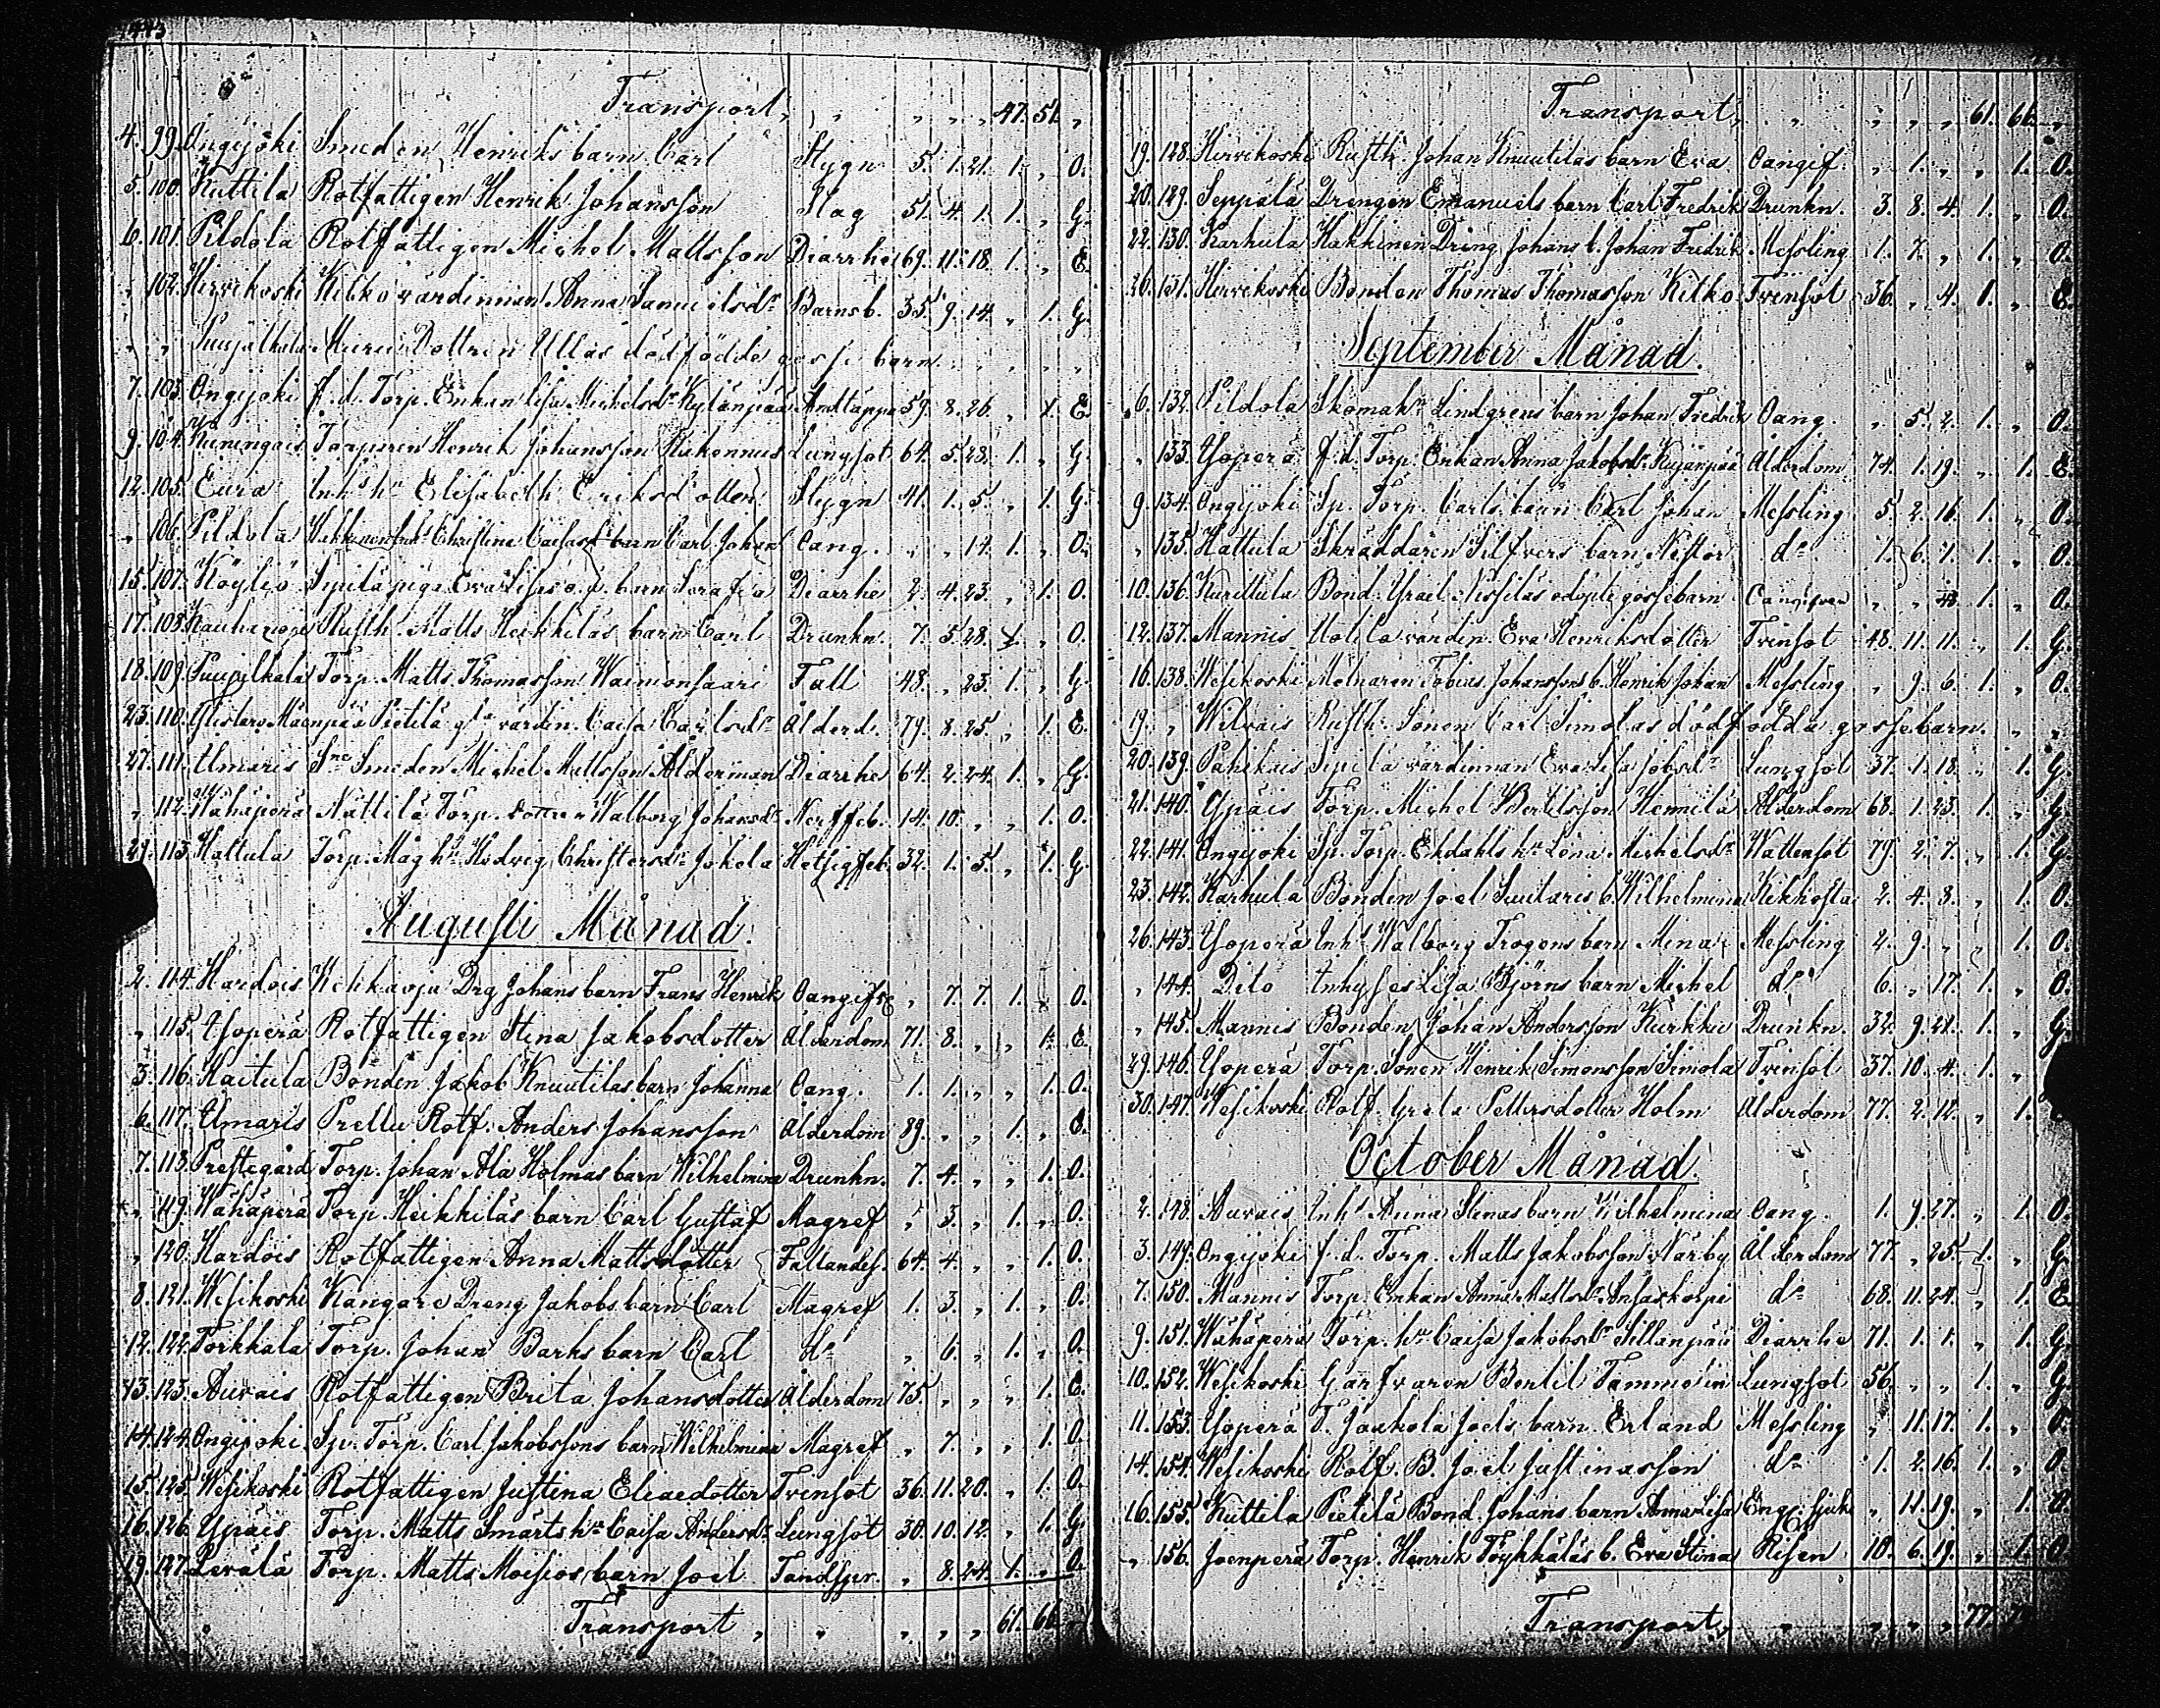 Transport „ „ „ „ „ 47. 51. „
4. 99. Ongijoki Smeden Henriks barn Carl Stygn 5. 1. 21. 1. „ O.
5. 100. Kuttila Rotfattigen Henrik Johansson Slag 51. 4. 1. 1. „ G.
6. 101. Pildola Rotfattigen Michel Mattsson Diarrhe 69. 11. 18. 1. „ E.
„ 102. Hirvikoski Kitko värdinnan Anna Samuelsdr Barnsb. 35. 9. 14. „ 1. G.
„ „ Suujälkala Dottren Ullas dödfödde gosse barn „ „ „ „ „
7. 103. Ongijoki f.d. Torp. Enkan Lisa Michelsdr Kylänpää Andtäppa 59. 8. 26. „ 1. E
9. 104. Torparen Henrik Johansson Lungsot 64. 5. 28. 1. „ G
12. 105. Eura Inhs hu Elisabeth Eriksdotter Stygn 41. 1. 5. „ 1. G.
„ 106. Pildola Christina Caisas barn Carl Johan Oang. „ „ 14. 1. „ O.
15. 107. Köyliö piga Eva Lisas o.ä. barn Serafia Diarrhe 2. 4. 23. „ 1. O.
17. 108. Rusth. Matts Heikkilas barn Carl Drunkn. 7. 5. 28. 1. „ O.
18. 109. Torp. Matts Thomasson Wainionsaari Fall 48. „ 23. 1. „ G.
23. 110. Pietilä gla värdin. Caisa Carlsdr Ålderd. 79. 8. 25. „ 1. E.
27. 111. Utmaris Sne Smeden Michel Mattsson Alderman Diarrhe 64. 2. 24. 1. „ G.
„ 112. Wähäperä Nuttila Torp. Dottren Walborg Johansdr Nerffeb. 14. 10. „ „ 1. O.
29. 113. Hattula Torp. Måg hu Hedvig Christersdr Jokela Hetsigfeb. 32. 1. 5. „ 1. G.
Augusti Månad.
2. 114. Kardois Drg Johans barn Frans Henrik Oangifve „ 7. 7. 1. „ O.
„ 115. Ylöperä Rotfattigen Stina Jakobsdotter Ålderdom 71. 8. „ „ 1. E.
3. 116. Bonden Jakob Knuutilas barn Johanna Oang. 1. 1. „ „ 1. O.
6. 117. Utmaris Prellu Rotf. Anders Johansson Ålderdom 89. „ „ 1. „ E.
7. 118. Prestegård Torp. Johan Ala Holmas barn Wilhelmina Drunkn. 7. 4. „ „ 1. O.
„ 119. Wähäperä Torp. Heikkiläs barn Carl Gustaf Magref „ 3. „ 1. „ O.
„ 120. Kardois Rotfattigen Anna Mattsdotter Fallandes. 64. 4. „ „ 1. O.
8. 121. Wesikoski Kangare Dreng Jakobs barn Carl Magref 1. 3. „ 1. „ O.
12. 122. Torkkala Torp. Johan Barks barn Carl do „ 6. „ 1. „ O.
13. 123. Auvais Rotfattigen Brita Johansdotter Ålderdom 75. „ „ „ 1. E.
14. 124. Ongijoki Sp. Torp. Carl Jakobssons barn Wilhelmina Magref „ 7. „ „ 1. O.
15. 125. Wesikoski Rotfattigen Justina Eliaedotter Tvinsot 36. 11. 20. „ 1. O.
16. 126. Ypäis Torp. Matts Smärts hu Caisa Andersdr Lungsot 30. 10. 12. „ 1. G.
19. 127. Levälä Torp. Matts Moisios barn Joel Tandspr. „ 8. 24. 1. „ O.
Transport „ „ „ „ „ 61. 66. „
Transport „ „ „ „ „ 61. 66. „
19. 128. Hirvikoski Rusth. Johan Knuutilas barn Eva Oangif. „ 1. „ „ 1. O.
20. 129. Seppälä Drengen Emanuels barn Carl Fredrik Drunkn. 3. 8. 4. 1. „ O.
22. 130. Karhula Hakkinen Dräng Johans b. Johan Fredrik Messling 1. 7. „ 1. „ O.
26. 131. Hirvikoski Bonden Thomas Thomasson Kitko Tvinsot 36. „ 4. 1. „ E
September Månad.
6. 132. Pildola Skomakr Lindgrens barn Johan Fredrik Oang. „ 5. 2. 1. „ O.
„ 133. Ylöperä f.d. Torp. Enkan Anna Jakobsdr Kujanpää Ålderdom 74. 1. 19. „ 1. E
9. 134. Ongijoki Sp. Torp. Carls barn Carl Johan Messling 5. 2. 16. 1. „ O.
„ 135. Hattula Skräddaren Silfvers barn Nestor do 1. 6. 1. 1. „ O.
10. 136. Kurittula Bond. Israel odöpte gossebarn Oangifven „ „ 1. „ O.
12. 137. Mannis Uotila värdin. Eva Henriksdotter Tvinsot 48. 11. 11. „ 1. G.
16. 138. Wesikoski Mölnaren Tobias Johanssons b. Henrik Johan Messling „ 9. 6. 1. „ O.
19. „ Wilvais Rusth. Sonen Carl Simolas dödfödda gossebarn. „ „
20. 139. Pahikais Sipilä värdinnan Eva Lisa Jobsdr Lungsot 37. 1. 18. „ 1. G.
21. 140. Ypäis Torp. Michel Bertilsson Hemilä Ålderdom 68. 1. 23. 1. „ G
22. 141. Ongijoki Sp. Torp. Ekdahls hu Lena Michelsdr Wattensot 79. 2. 7. „ 1. G.
23. 142. Karhula Bonden Joel Suutaris b. Wilhelmina Kikhosta 2. 4. 8. „ 1. O.
26. 143. Ylöperä Inhs Walborg Trogens barn Mina Messling 2. 9. „ „ 1. O.
„ 144. Dito Inhyses Lisa Björns barn Michel do 6. „ 17. 1. „ O.
„ 145. Mannis Bonden Johan Andersson Kurkkio Drunkn. 32. 9. 21. 1. „ G.
29. 146. Ylöperä Torp. Sonen Henrik Simonsson Simola Tvinsot 37. 10. 4. 1. „
30. 147. Wesikoski Rotf. Greta Pettersdotter Holm Ålderdom 77. 2. 12. „ 1.
October Månad.
2. 148. Auvais Inhs Anna Stinas barn Wilhelmina Oang. 1. 9. 27. „ 1. O.
3. 149. Ongijoki f.d. Torp. Matts Jakobsson Närby Ålderdom 77. „ 25. 1. „ G.
7. 150. Mannis Torp. Enkan Anna Mattsdr Ansaskorpi do 68. 11. 24. „ 1. E
9. 151. Wähäperä Torp. hu Caisa Jakobsdr Sillanpää Diarrhe 71. 1. 1. „ 1. G
10. 152. Wesikoski Garfvaren Bertil Tammelin Lungsot 56. „ „ 1. „ G.
11. 153. Ylöperä T. Jaakola Joels barn Erland Messling „ 11. 17. 1. „ O.
14. 154. Wesikoski Rotf. B. Joel Justinasson do 1. 2. 16. 1. „ O
16. 155. Kuttila Pietilä Bond. Johans barn Anna Lisa Eng. Sjuka „ 11. 19. „ 1. O.
„ 156. Joenperä Torp. Henrik Töykkäläs b. Eva Stina Risen 10. 6. 19. „ 1. O.
Transport „ „ „ „ „ 77.